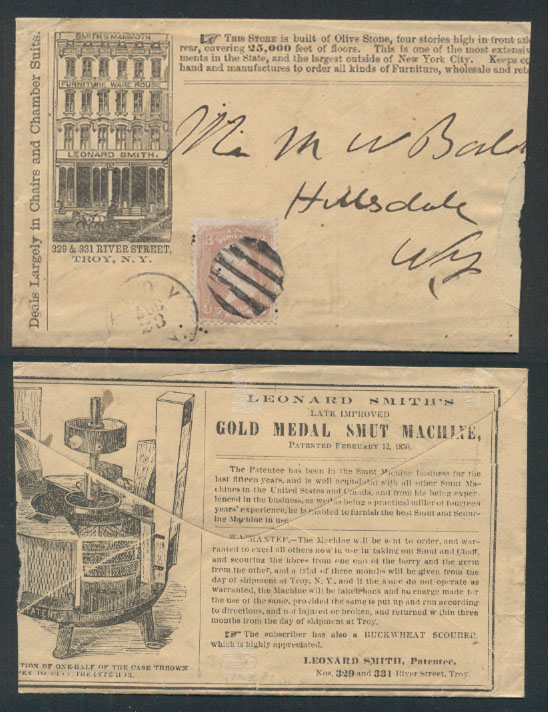 Deals Largely in Chairs and Chamber Suits.
SMITH'S MAMMOTH
FURNITURE WARE HOUSE
LEONARD SMITH.
329 & 331 RIVER STREET,
TROY, N. Y.
☞ THIS STORE is built of Olive Stone, four stories high in front an
rear, covering 25,000 feet of floors. This is one of the most extensiv
ments in the State, and the largest outside of New York City. Keeps
hand and manufactures to order all kinds of Furniture, wholesale and ret
M W
Hillsdale
AUG
23
LEONARD SMITH'S
LATE IMPROVED
GOLD MEDAL SMUT MACHINE,
PATENTED FEBRUARY 12, 1856.
The Patentee has been in the Smut Machine business for the
last fifteen years, and is well acquainted with all other Smut Ma-
chines in the United States and Canada, and from his being exper-
ienced in the business, as well as being a practical miller of fourteen
years' experience, he is enabled to furnish the best Smut and Scour-
ing Machine in use
WARRANTEE.—The Machine will be sent to order, and war-
ranted to excel all others now in use in taking out Smut and Chaff,
and scouring the fibres from one end of the berry and the germ
from the other, and a trial of three months will be given from the
day of shipment at Troy, N. Y., and if the same do not operate as
warranted, the Machine will be taken back and no charge made for
the use of the same, provided the same is put up and run according
to directions, and not injured or broken, and returned within three
months from the day of shipment at Troy.
☞ The subscriber has also a BUCKWHEAT SCOURER
which is highly appreciated.
LEONARD SMITH, Patentee,
Nos. 329 and 331 River Street, Troy.
TION OF ONE-HALF OF THE CASE THROWN
TO THE INTERIOR.